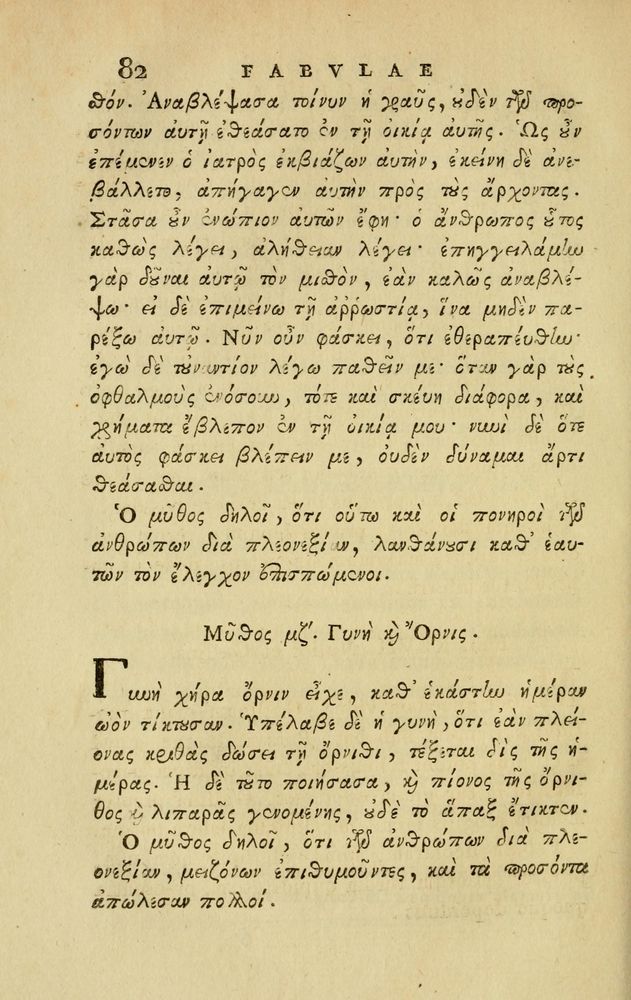 82 FABVLAE
θόν. Ἀναβλέψασα τοίνυν ἡ γραῦς, ȣ̓δὲν τῶν προ-
σόντων αὐτῇ ἐθεάσατο ἐν τῇ οἰκίᾳ αὐτῆς. Ὡς ȣ̓͂ν
ἐπέμενεν ὁ ἰατρὸς ἐκβιάζων αὐτὴν, ἐκείνη δὲ ἀνε-
βάλλετο, ἀπήγαγεν αὐτὴν πρὸς τȣ̀ς ἄρχοντας.
Στᾶσα ȣ̓͂ν ἐνώπιον αὐτῶν ἔφη· ὁ ἄνθρωπος ȣ̔͂τος
καθὼς λέγει, ἀλήθειαν λέγει· ἐπηγγειλάμην
γὰρ δȣ͂ναι αὐτῷ τὸν μισθὸν, ἐὰν καλῶς ἀναβλέ-
ψω· εἰ δὲ ἐπιμείνω τῇ ἀῤῥωστίᾳ, ἵνα μηδὲν πα-
ρέξω αὐτῷ. Νῦν οὖν φάσκει, ὅτι ἐθεραπεύθην·
ἐγὼ δὲ τȣ̓ναντίον λέγω παθεῖν με· ὅταν γὰρ τȣ̀ς
ὀφθαλμοὺς ἐνόσουν, τότε καὶ σκεύη διάφορα, καὶ
χρήματα ἔβλεπον ἐν τῇ οἰκίᾳ μου· νυνὶ δὲ ὅτε
αὐτὸς φάσκει βλέπειν με, οὐδὲν δύναμαι ἄρτι
θεάσασθαι.
Ὁ μῦθος δηλοῖ, ὅτι οὕτω καὶ οἱ πονηροὶ τῶν
ἀνθρώπων διὰ πλεονεξίαν, λανθάνȣσι καθ' ἑαυ-
τῶν τὸν ἔλεγχον ἐπισπώμενοι.
Μῦθος μζʹ. Γυνὴ ϗ̀ Ὄρνις.
Γυνὴ χήρα ὄρνιν εἶχε, καθ' ἑκάστην ἡμέραν
ὠὸν τίκτȣσαν. Ὑπέλαβε δὲ ἡ γυνὴ, ὅτι ἐὰν πλεί-
ονας κριθὰς δώσει τῇ ὄρνιθι, τέξεται δὶς τῆς ἡ-
μέρας. Ἡ δὲ τȣ͂το ποιήσασα, ϗ̀ πίονος τῆς ὄρνι-
θος ϗ̀ λιπαρᾶς γενομένης, ȣ̓δὲ τὸ ἅπαξ ἔτικτεν.
Ὁ μῦθος δηλοῖ, ὅτι τῶν ἀνθρώπων διὰ πλε-
ονεξίαν, μειζόνων ἐπιθυμοῦντες, καὶ τὰ προσόντα
ἀπώλεσαν πολλοί.